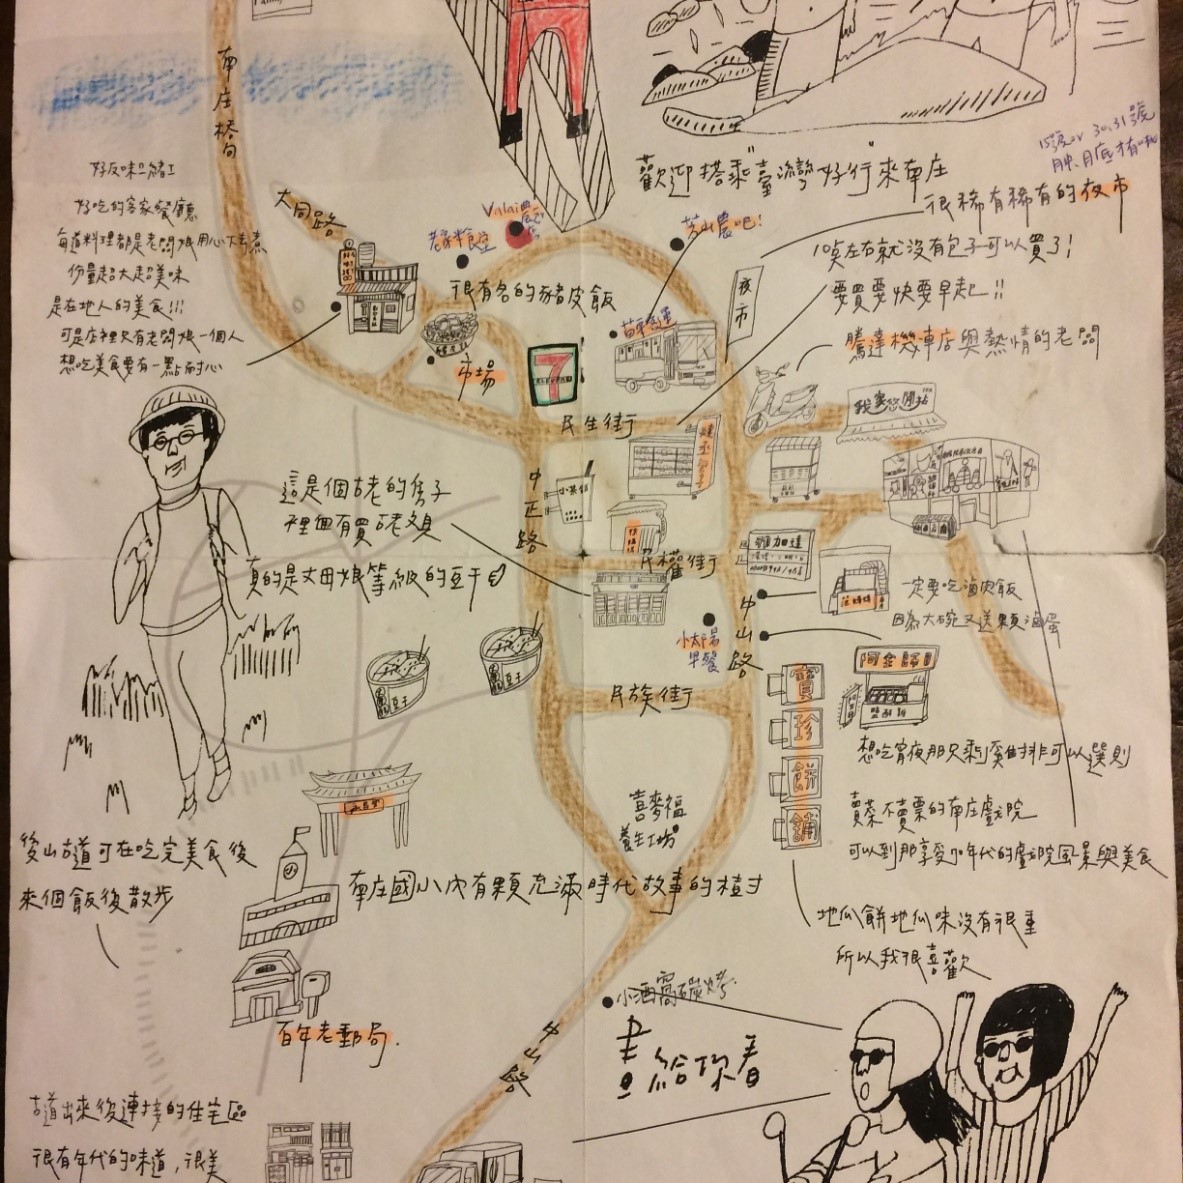 南庄橋向
歡迎搭乘"臺灣好行"來南庄
15號or 30.31號
很稀有稀有的夜市
好吃的客家餐廳
每道料理都是老闆娘用心下去煮
份量超大超美味
是在地人的美食!!!
可是店裡只有老闆娘一個人
想吃美食要有一點耐心
大同路
很有名的豬皮飯
市場
7
ELEVEN
夜市
10點左右就沒有包子可以買了!
要買要快要早起!!
騰達機車店與熱情的老闆
民生街
中正路
這是個古老的房子
裡面有賣古老文具
民權街
真的是丈母娘等級的豆干
豆干
豆干
中山路
小太陽
早餐
一定要吃滷肉飯
因為大碗又送顆滷蛋
民族街
寶珍餅舖
想吃宵夜那只剩蛋的排可以選則
賣菜不賣票的南庄戲院
可以到那享受小年代的戲院風景與美食
喜麥福
養生工坊
後山古道可在吃完美食後
來個飯後散步
南庄國小內有顆充滿時代故事的樹
地瓜餅地瓜味沒有很重
所以我很喜歡
百年老郵局.
小酒窩碳烤
畫給你看
中山路
古道出來後連接的住宅區
很有年代的味道,很美